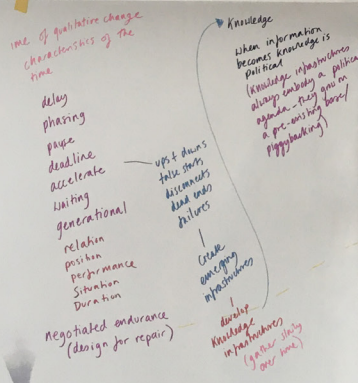 ime of qualitative change
characteristics of the
time
delay
phasing
pause
deadline
accelerate
waiting
generational
relation
position
performance
Situation
Duration
negotiated endurance
(design for repair)
ups + downs
false starts
disconnects
dead ends
failures
Create
emerging
infrastructures
develop
Knowledge
infrastructures
(gather slowly
over time)
Knowledge
When information
becomes knowledge is
Political
(Knowledge infrastructures
always embody a politica
agenda - they grow on
a pre-existing base/
piggybacking)